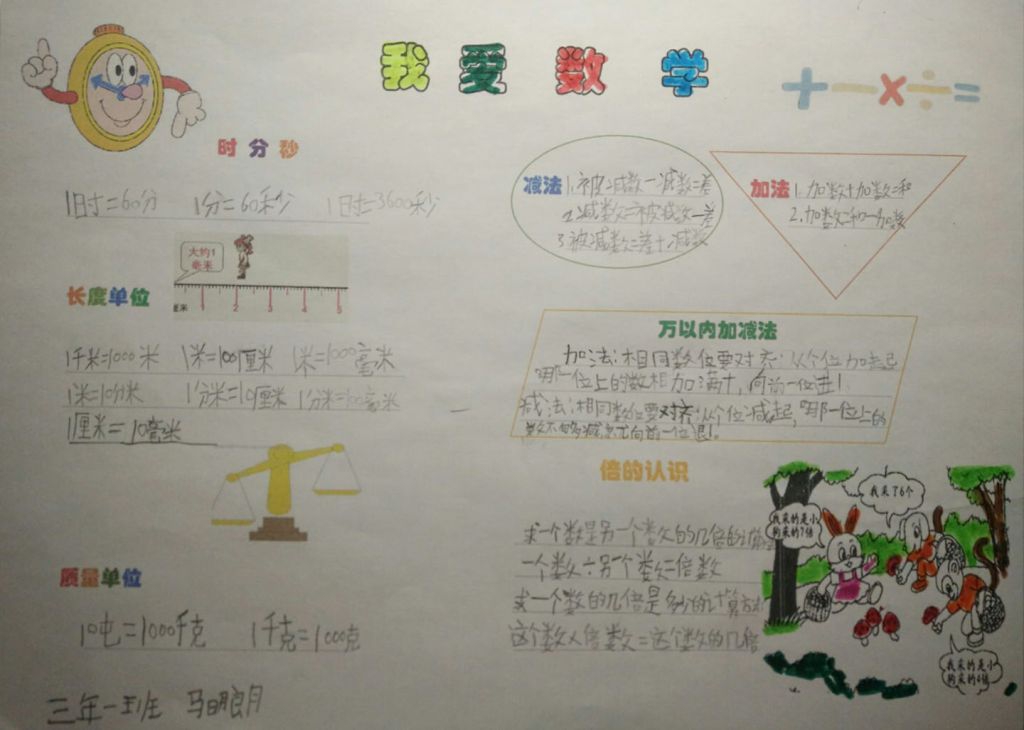 我爱数学
+ − × ÷ =
时分秒
1时=60分 1分=60秒 1时=3600秒
大约1
毫米
厘米 1 2 3 4 5
长度单位
1千米=1000米 1米=100厘米 1米=1000毫米
1米=10分米 1分米=10厘米 1分米=100毫米
1厘米=10毫米
质量单位
10吨=1000千克 1千克=1000克
三年一班 马明朗月
减法 1.被减数一减数=差
2.减数=被减数一差
3.被减数=差+减数
加法 1.加数+加数=和
2.加数=和一加数
万以内加减法
加法:相同数位要对齐:从个位加起
哪一位上的数相加满十,向前一位进1
减法:相同数位要对齐:从个位减起,哪一位上的
数不够减就向前一位退1。
倍的认识
求一个数是另一个数的几倍的计算
一个数÷另个数=倍数
求一个数的几倍是多少的计算方法
这个数×倍数=这个数的几倍
我采了6个
我采的是小
狗采的?倍
我采的是小
狗采的4倍